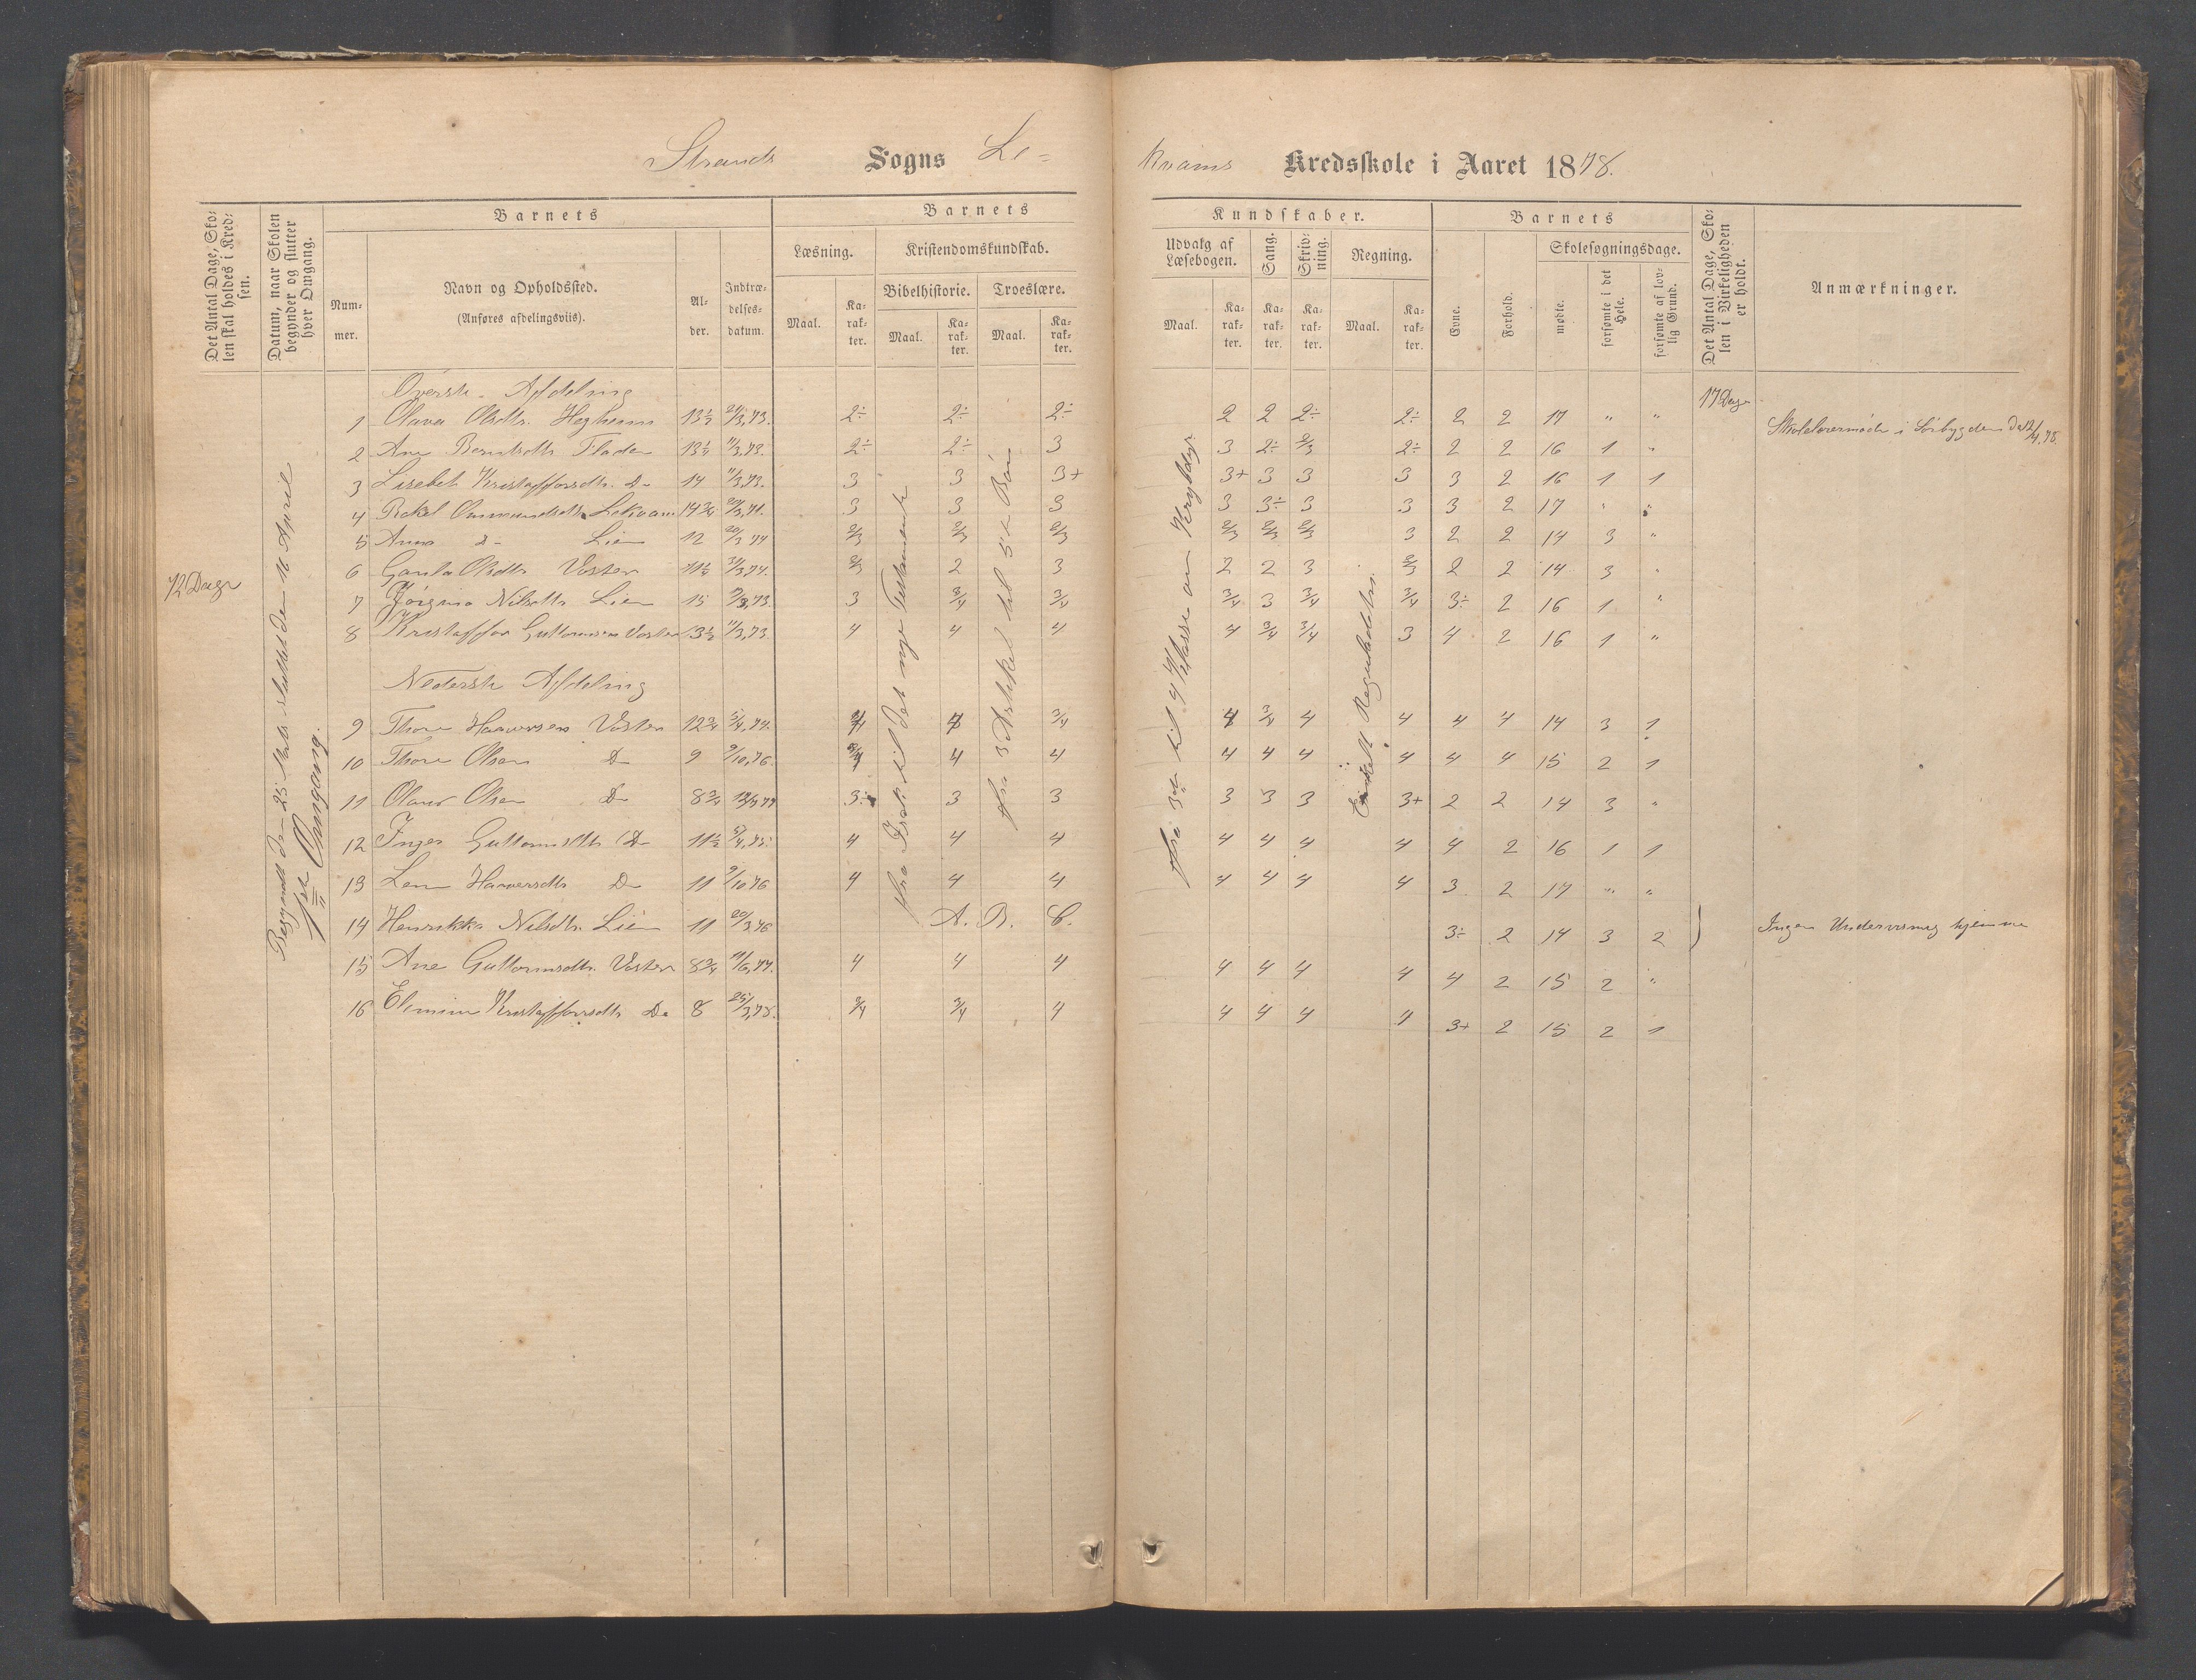 Strands Sogns Le=
kvams Kredsskole i Aaret 1878.
Det Antal Dage, Skolen skal holdes i Kredsen.
Datum, naar Skolen begynder og slutter hver Omgang.
Barnets
Nummer.
Navn og Opholdssted.
(Anføres afdelingsviis).
Alder.
Indtrædelsesdatum.
Barnets
Læsning.
Maal.
Karakter.
Kristendomskundskab.
Bibelhistorie.
Maal.
Karakter.
Troeslære.
Maal.
Karakter.
Kundskaber.
Udvalg af Læsebogen.
Maal.
Karakter.
Sang.
Karakter.
Skrivning.
Karakter.
Regning.
Maal.
Karakter.
Barnets
Evne.
Forhold.
Skolesøgningsdage.
mødte.
forsømte i det Hele.
forsømte af lovlig Grund.
Det Antal Dage, Skolen i Virkeligheden er holdt.
Anmærkninger.
72 Dage
Begyndt den 25 Marts sluttet den 16 April
1ste Omgang.
fra Isak til det nye Testamente
fra 3 Artikel til 5te Bøn
fra 3die til 4 Klasse om Krybdyr
Enkelt Reguladetri.
Øverste Afdeling
17 Dage
1 Olava Olsdtr. 13½ 2÷ 2÷ 2÷ 2 2 2÷ 2÷ 2 2 17 " "
Skolelærermøde i Sørbygden
2 Ane Berntsdtr. Fladen 13½ 11/3,73. 2÷ 2÷ 3 3 2÷ 2/3 2÷ 2 2 16 1 "
3 Lisebet Kristoffersdtr. D- 14 11/3,73. 3 3 3+ 3+ 3 3 3 3 2 16 1 1
4 Rakel Ommundsdtr. Lekvam 14¾ 3 3 3 3 3÷ 3 3 3 2 17 " "
5 Anna D- Lien 12 20/3 74 2/3 2/3 2/3 2/3 2/3 2/3 3 2 2 14 3 "
6 Gunla Olsdtr. Voster 11½ 2/3 2 3 2 2 3 2/3 2 2 14 3 "
7 Jørgina Nilsdtr. Lien 15 3 3/4 3/4 3/4 3 3/4 3/4 3÷ 2 16 1 "
8 Kristoffer Guttormsen Voster 13½ 11/3,73. 4 4 4 4 3/4 3/4 3 4 2 16 1 "
Nederste Afdeling
9 Thore Haaversen Voster 12¾ 3/4 4 3/4 4 4 4 4 14 3 1
10 Thore Olsen D- 9 9/10,76. 4 4 4 4 4 4 4 4 15 2 1
11 Olaus Olsen D- 8¾ 3÷ 3 3 3 3 3 3+ 2 2 14 3 "
12 Inger Guttormsdtr. D- 11½ 4 4 4 4 4 4 4 4 2 16 1 1
13 Lene Haaversdtr. D- 11 9/10 76 4 4 4 4 4 4 4 3 2 17 " "
14 Henrikka Nilsdtr. Lien 11 20/3,76 A. B. C. 3÷ 2 14 3 2
Ingen Undervisning hjemme
15 Ane Guttormsdtr. Voster 8¾ 11/6,77. 4 4 4 4 4 4 4 4 2 15 2 "
16 Kristoffersdtr. D- 8 25/3,78. 3/4 3/4 4 4 4 4 4 3+ 2 15 2 1